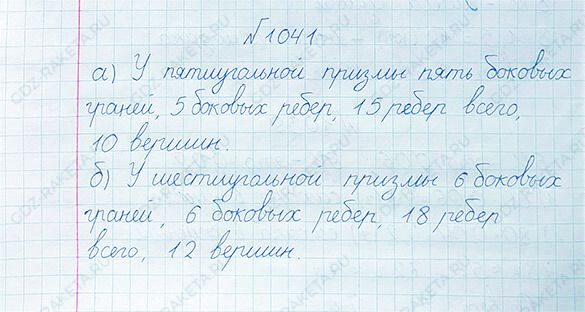 №1041
а) У пятиугольной призмы пять боковых
граней, 5 боковых ребер, 15 ребер всего,
10 вершин.
б) У шестиугольной призмы 6 боковых
граней, 6 боковых ребер, 18 ребер
всего, 12 вершин.